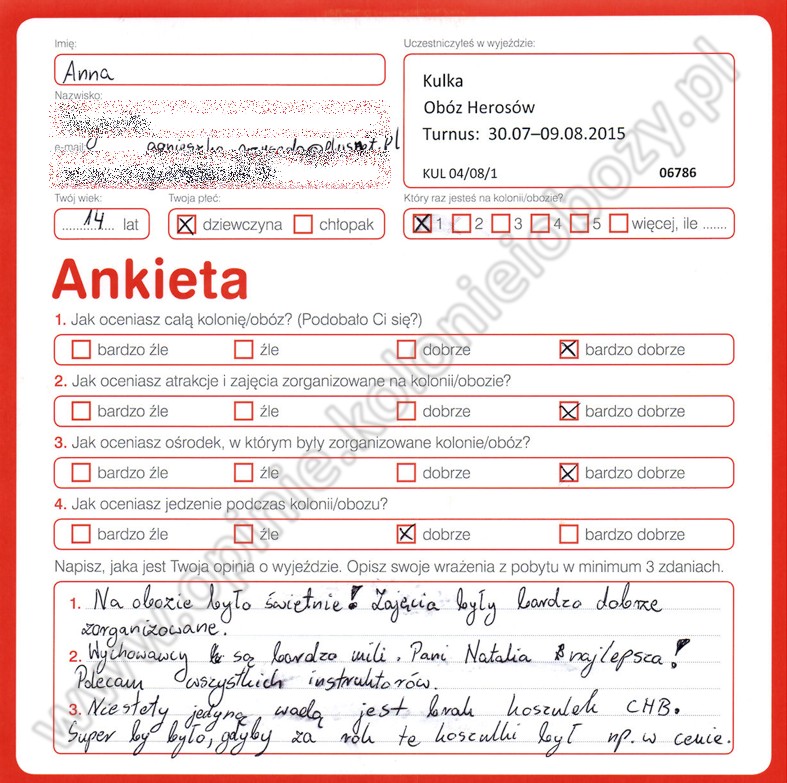 Imię:
Uczestniczyłeś w wyjeździe:
Anna
Kulka
Obóz Herosów
Turnus: 30.07–09.08.2015
KUL 04/08/1 06786
Nazwisko:
e-mail:
Twój wiek:
Twoja płeć:
Który raz jesteś na kolonii/obozie?
14 lat
dziewczyna chłopak
1 2 3 4 5 więcej, ile .......
Ankieta
1. Jak oceniasz całą kolonię/obóz? (Podobało Ci się?)
bardzo źle źle dobrze bardzo dobrze
2. Jak oceniasz atrakcje i zajęcia zorganizowane na kolonii/obozie?
bardzo źle źle dobrze bardzo dobrze
3. Jak oceniasz ośrodek, w którym były zorganizowane kolonie/obóz?
bardzo źle źle dobrze bardzo dobrze
4. Jak oceniasz jedzenie podczas kolonii/obozu?
bardzo źle źle dobrze bardzo dobrze
Napisz, jaka jest Twoja opinia o wyjeździe. Opisz swoje wrażenia z pobytu w minimum 3 zdaniach.
1. Na obozie było świetnie! Zajęcia były bardzo dobrze
zorganizowane.
2. Wychowawcy są bardzo mili. Pani Natalia najlepsza!
Polecam wszystkich instruktorów.
3. Niestety jedyną wadą jest brak koszulek CHB.
Super by było, gdyby za rok te koszulki był np. w cenie.
www.opinie.kolonieiobozy.pl